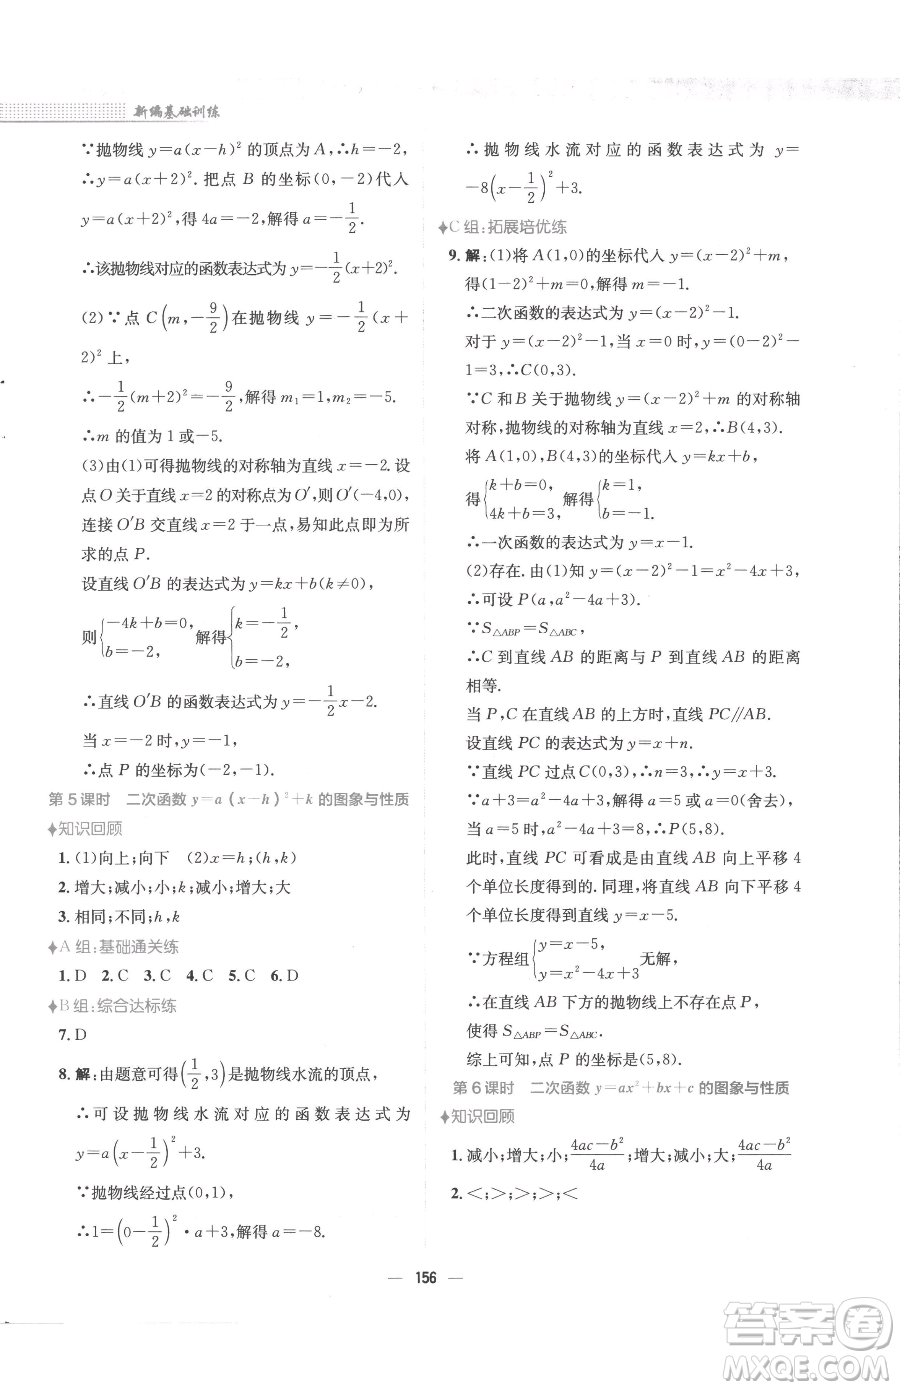 新编基础训练
∵抛物线 y=a(x-h)² 的顶点为 A,∴h=-2,
∴y=a(x+2)². 把点 B 的坐标(0,-2)代人
y=a(x+2)²,得 4a=-2,解得 a=-1/2.
∴该抛物线对应的函数表达式为 y=-1/2(x+2)².
(2)∵点 C(m,-9/2)在抛物线 y=-1/2(x+
2)² 上,
∴-1/2(m+2)²=-9/2,解得 m₁=1,m₂=-5.
∴m 的值为 1 或-5.
(3)由(1)可得抛物线的对称轴为直线 x=-2. 设
点 O 关于直线 x=2 的对称点为 O′,则 O′(-4,0),
连接 O′B 交直线 x=2 于一点,易知此点即为所
求的点 P.
设直线 O′B 的表达式为 y=kx+b(k≠0),
则{-4k+b=0, b=-2, 解得{k=-1/2, b=-2,
∴直线 O′B 的函数表达式为 y=-1/2x-2.
当 x=-2 时,y=-1,
∴点 P 的坐标为(-2,-1).
第 5 课时 二次函数 y=a(x-h)²+k 的图象与性质
知识回顾
1. (1)向上;向下 (2)x=h;(h,k)
2. 增大;减小;小;k;减小;增大;大
3. 相同;不同;h,k
A 组:基础通关练
1. D 2. C 3. C 4. C 5. C 6. D
B 组:综合达标练
7. D
8. 解:由题意可得(1/2,3)是抛物线水流的顶点,
∴可设抛物线水流对应的函数表达式为
y=a(x-1/2)²+3.
∵抛物线经过点(0,1),
∴1=(0-1/2)²·a+3,解得 a=-8.
∴抛物线水流对应的函数表达式为 y=
-8(x-1/2)²+3.
C 组:拓展培优练
9. 解:(1)将 A(1,0)的坐标代人 y=(x-2)²+m,
得(1-2)²+m=0,解得 m=-1.
∴二次函数的表达式为 y=(x-2)²-1.
对于 y=(x-2)²-1,当 x=0 时,y=(0-2)²-
1=3,∴C(0,3).
∵C 和 B 关于抛物线 y=(x-2)²+m 的对称轴
对称,抛物线的对称轴为直线 x=2,∴B(4,3).
将 A(1,0),B(4,3)的坐标代人 y=kx+b,
得{k+b=0, 4k+b=3, 解得{k=1, b=-1.
∴一次函数的表达式为 y=x-1.
(2)存在. 由(1)知 y=(x-2)²-1=x²-4x+3,
∴可设 P(a,a²-4a+3).
∵S△ABP=S△ABC,
∴C 到直线 AB 的距离与 P 到直线 AB 的距离
相等.
当 P,C 在直线 AB 的上方时,直线 PC∥AB.
设直线 PC 的表达式为 y=x+n.
∵直线 PC 过点 C(0,3),∴n=3,∴y=x+3.
∵a+3=a²-4a+3,∴a=5 或 a=0(舍去),
当 a=5 时,a²-4a+3=8,∴P(5,8).
此时,直线 PC 可看成是由直线 AB 向上平移 4
个单位长度得到的. 同理,将直线 AB 向下平移 4
个单位长度得到直线 y=x-5.
∵方程组{y=x-5, y=x²-4x+3 无解,
∴不存在直线 AB 下方的抛物线上的点 P,
使得 S△ABP=S△ABC.
综上可知,点 P 的坐标是(5,8).
第 6 课时 二次函数 y=ax²+bx+c 的图象与性质
知识回顾
1. 减小;增大;小;(4ac-b²)/4a;增大;减小;大;(4ac-b²)/4a
2. <;>;>;>;<
— 156 —
答案圈
MXQE.COM